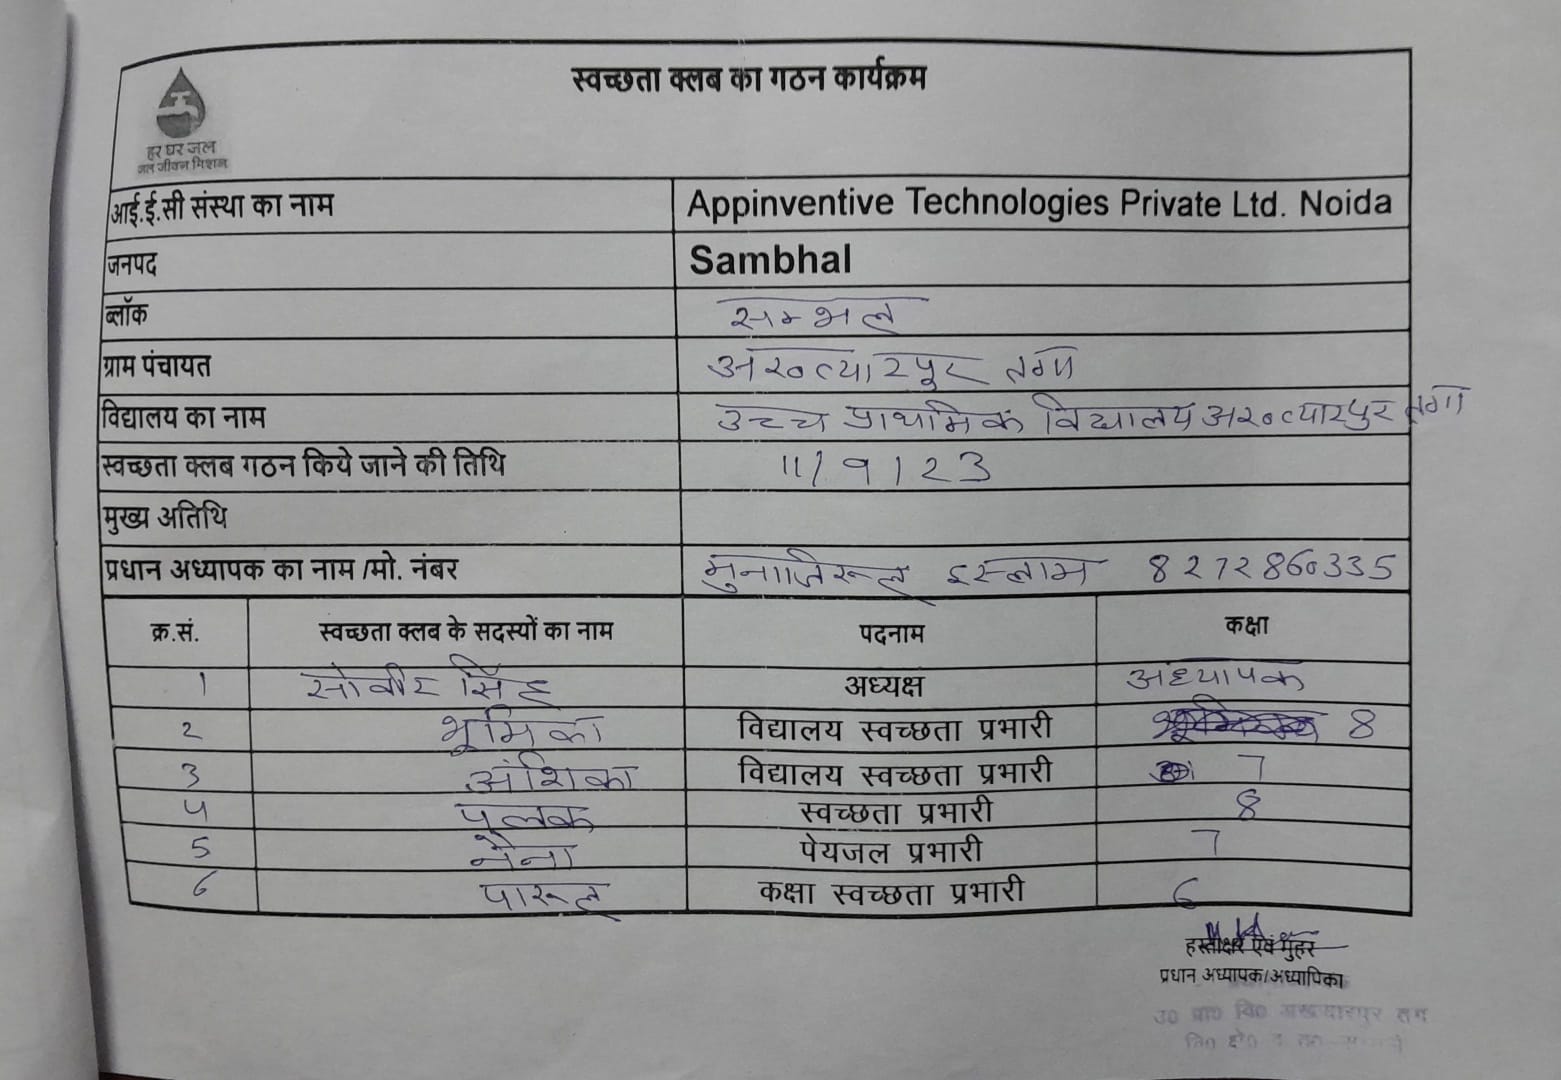 हर घर जल
जल जीवन मिशन
स्वच्छता क्लब का गठन कार्यक्रम
आई.ई.सी संस्था का नाम Appinventive Technologies Private Ltd. Noida
जनपद Sambhal
ब्लॉक सम्भल
ग्राम पंचायत अख्त्यारपुर तगा
विद्यालय का नाम उच्च प्राथमिक विद्यालय अख्त्यारपुर तगा
स्वच्छता क्लब गठन किये जाने की तिथि 11/9/23
मुख्य अतिथि
प्रधान अध्यापक का नाम /मो. नंबर मुनाजिरूल इस्लाम 8272860335
क्र.सं. स्वच्छता क्लब के सदस्यों का नाम पदनाम कक्षा
1 सोवीर सिंह अध्यक्ष अध्यापक
2 भूमिका विद्यालय स्वच्छता प्रभारी 8
3 अंशिका विद्यालय स्वच्छता प्रभारी 7
4 पलक स्वच्छता प्रभारी 8
5 नैना पेयजल प्रभारी 7
6 पारूल कक्षा स्वच्छता प्रभारी 6
हस्ताक्षर एवं मुहर
प्रधान अध्यापक/अध्यापिका
उ0 प्रा0 वि0 अख्त्यारपुर तगा